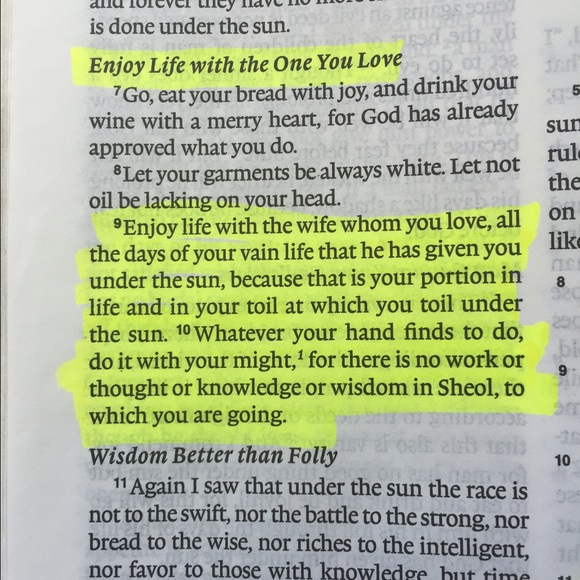 and forever they have no more
is done under the sun.
Enjoy Life with the One You Love
7Go, eat your bread with joy, and drink your
wine with a merry heart, for God has already
approved what you do.
8Let your garments be always white. Let not
oil be lacking on your head.
9Enjoy life with the wife whom you love, all
the days of your vain life that he has given you
under the sun, because that is your portion in
life and in your toil at which you toil under
the sun. 10Whatever your hand finds to do,
do it with your might,1 for there is no work or
thought or knowledge or wisdom in Sheol, to
which you are going.
Wisdom Better than Folly
11Again I saw that under the sun the race is
not to the swift, nor the battle to the strong, nor
bread to the wise, nor riches to the intelligent,
nor favor to those with knowledge, but time
5
sun
rul
the
on
lik
8
9
10